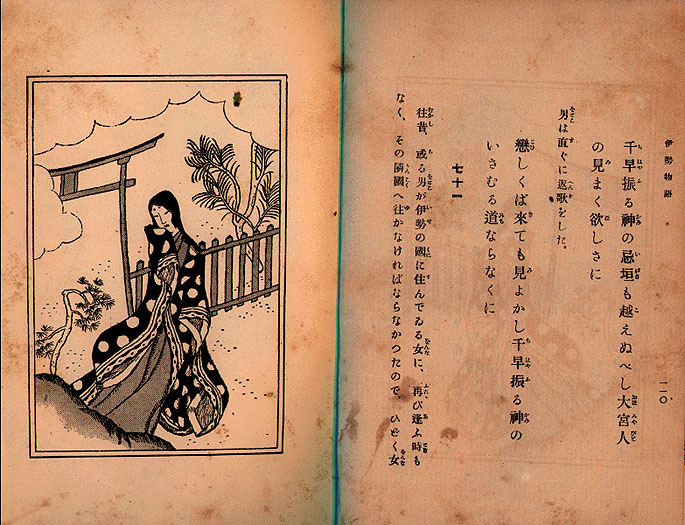 伊勢物語
一一〇
千早振る神の忌垣も越えぬべし大宮人
の見まく欲しさに
男は直ぐに返歌をした。
戀しくば來ても見よかし千早振る神の
いさむる道ならなくに
七十一
往昔、或る男が伊勢の國に住んでゐる女に、再び逢ふ時も
なく、その隣國へ往かなければならなかつたので、ひどく女